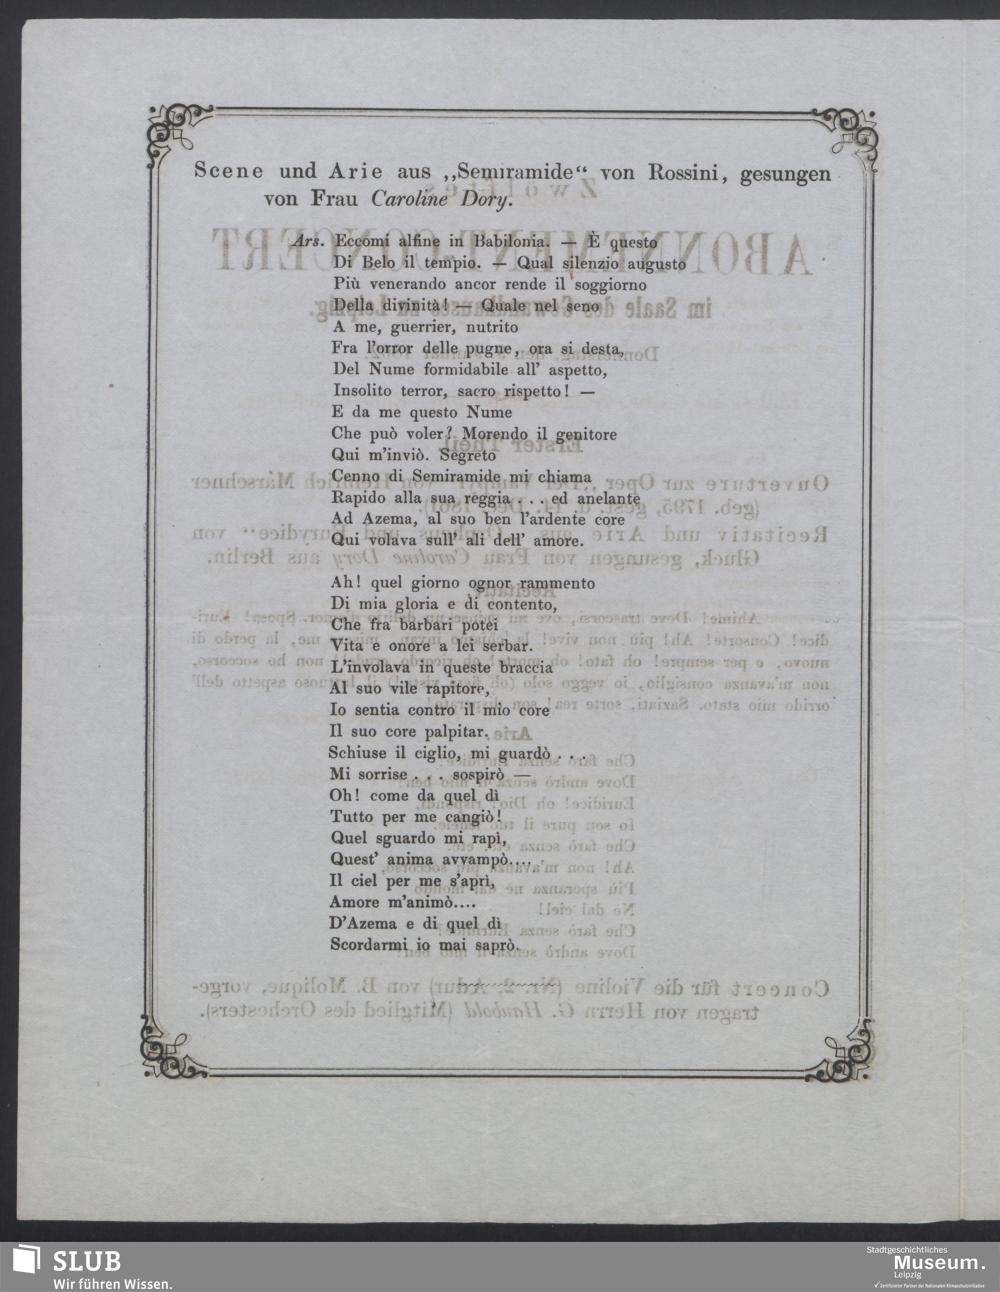 Scene und Arie aus ,,Semiramide“ von Rossini, gesungen
von Frau Caroline Dory.
Ars. Eccomi alfine in Babilonia. — È questo
Di Belo il tempio. — Qual silenzio augusto
Più venerando ancor rende il soggiorno
Della divinità! — Quale nel seno
A me, guerrier, nutrito
Fra l'orror delle pugne, ora si desta,
Del Nume formidabile all' aspetto,
Insolito terror, sacro rispetto! —
E da me questo Nume
Che può voler? Morendo il genitore
Qui m'inviò. Segreto
Cenno di Semiramide mi chiama
Rapido alla sua reggia . . . ed anelante
Ad Azema, al suo ben l'ardente core
Qui volava sull' ali dell' amore.
Ah! quel giorno ognor rammento
Di mia gloria e di contento,
Che fra barbari potei
Vita e onore a lei serbar.
L'involava in queste braccia
Al suo vile rapitore,
Io sentia contro il mio core
Il suo core palpitar.
Schiuse il ciglio, mi guardò . . .
Mi sorrise . . . sospirò —
Oh! come da quel dì
Tutto per me cangiò!
Quel sguardo mi rapì,
Quest' anima avvampò....
Il ciel per me s'aprì,
Amore m'animò....
D'Azema e di quel dì
Scordarmi io mai saprò.
SLUB
Wir führen Wissen.
Stadtgeschichtliches
Museum.
Leipzig
Zertifizierter Partner der Nationalen Klimaschutzinitiative